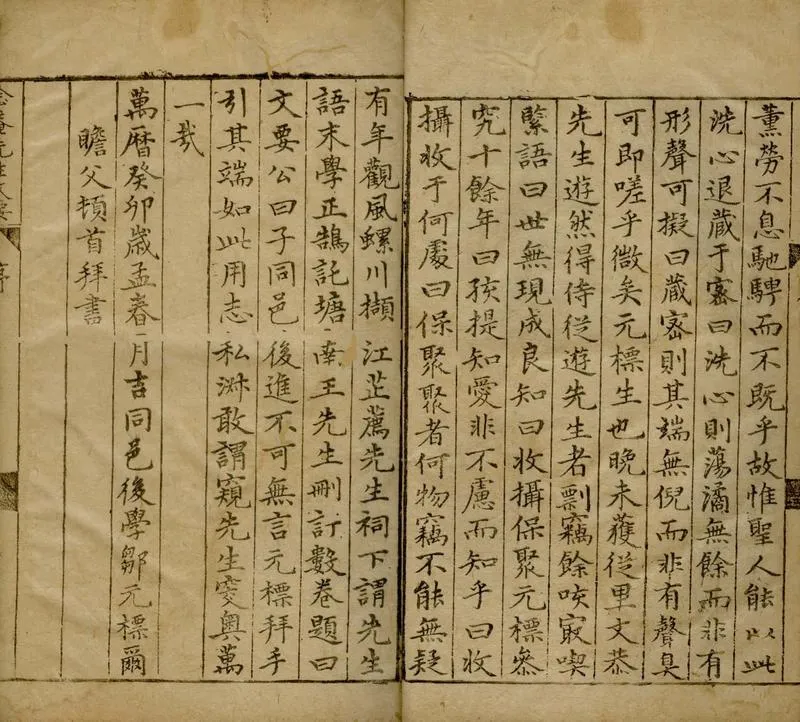 薰勞不息馳騁而不既乎故惟聖人能以此
洗心退藏于密曰洗心則蕩潏無餘而非有
形聲可擬曰藏密則其端無倪而非有聲臭
可即嗟乎微矣元標生也晚未獲從里文恭
先生遊然得侍從遊先生者剽竊餘唊最喫
緊語曰世無現成良知曰收攝保聚元標參
究十餘年曰孩提知愛非不慮而知乎曰收
攝收于何處曰保聚聚者何物竊不能無疑
有年觀風螺川擷江芷薦先生祠下謂先生
語末學正鵠託塘南王先生刪訂數卷題曰
文要公曰子同邑後進不可無言元標拜手
引其端如此用志私淑敢謂窺先生窔奧萬
一哉
萬曆癸卯歲孟春月吉同邑後學鄒元標爾
瞻父頓首拜書
序